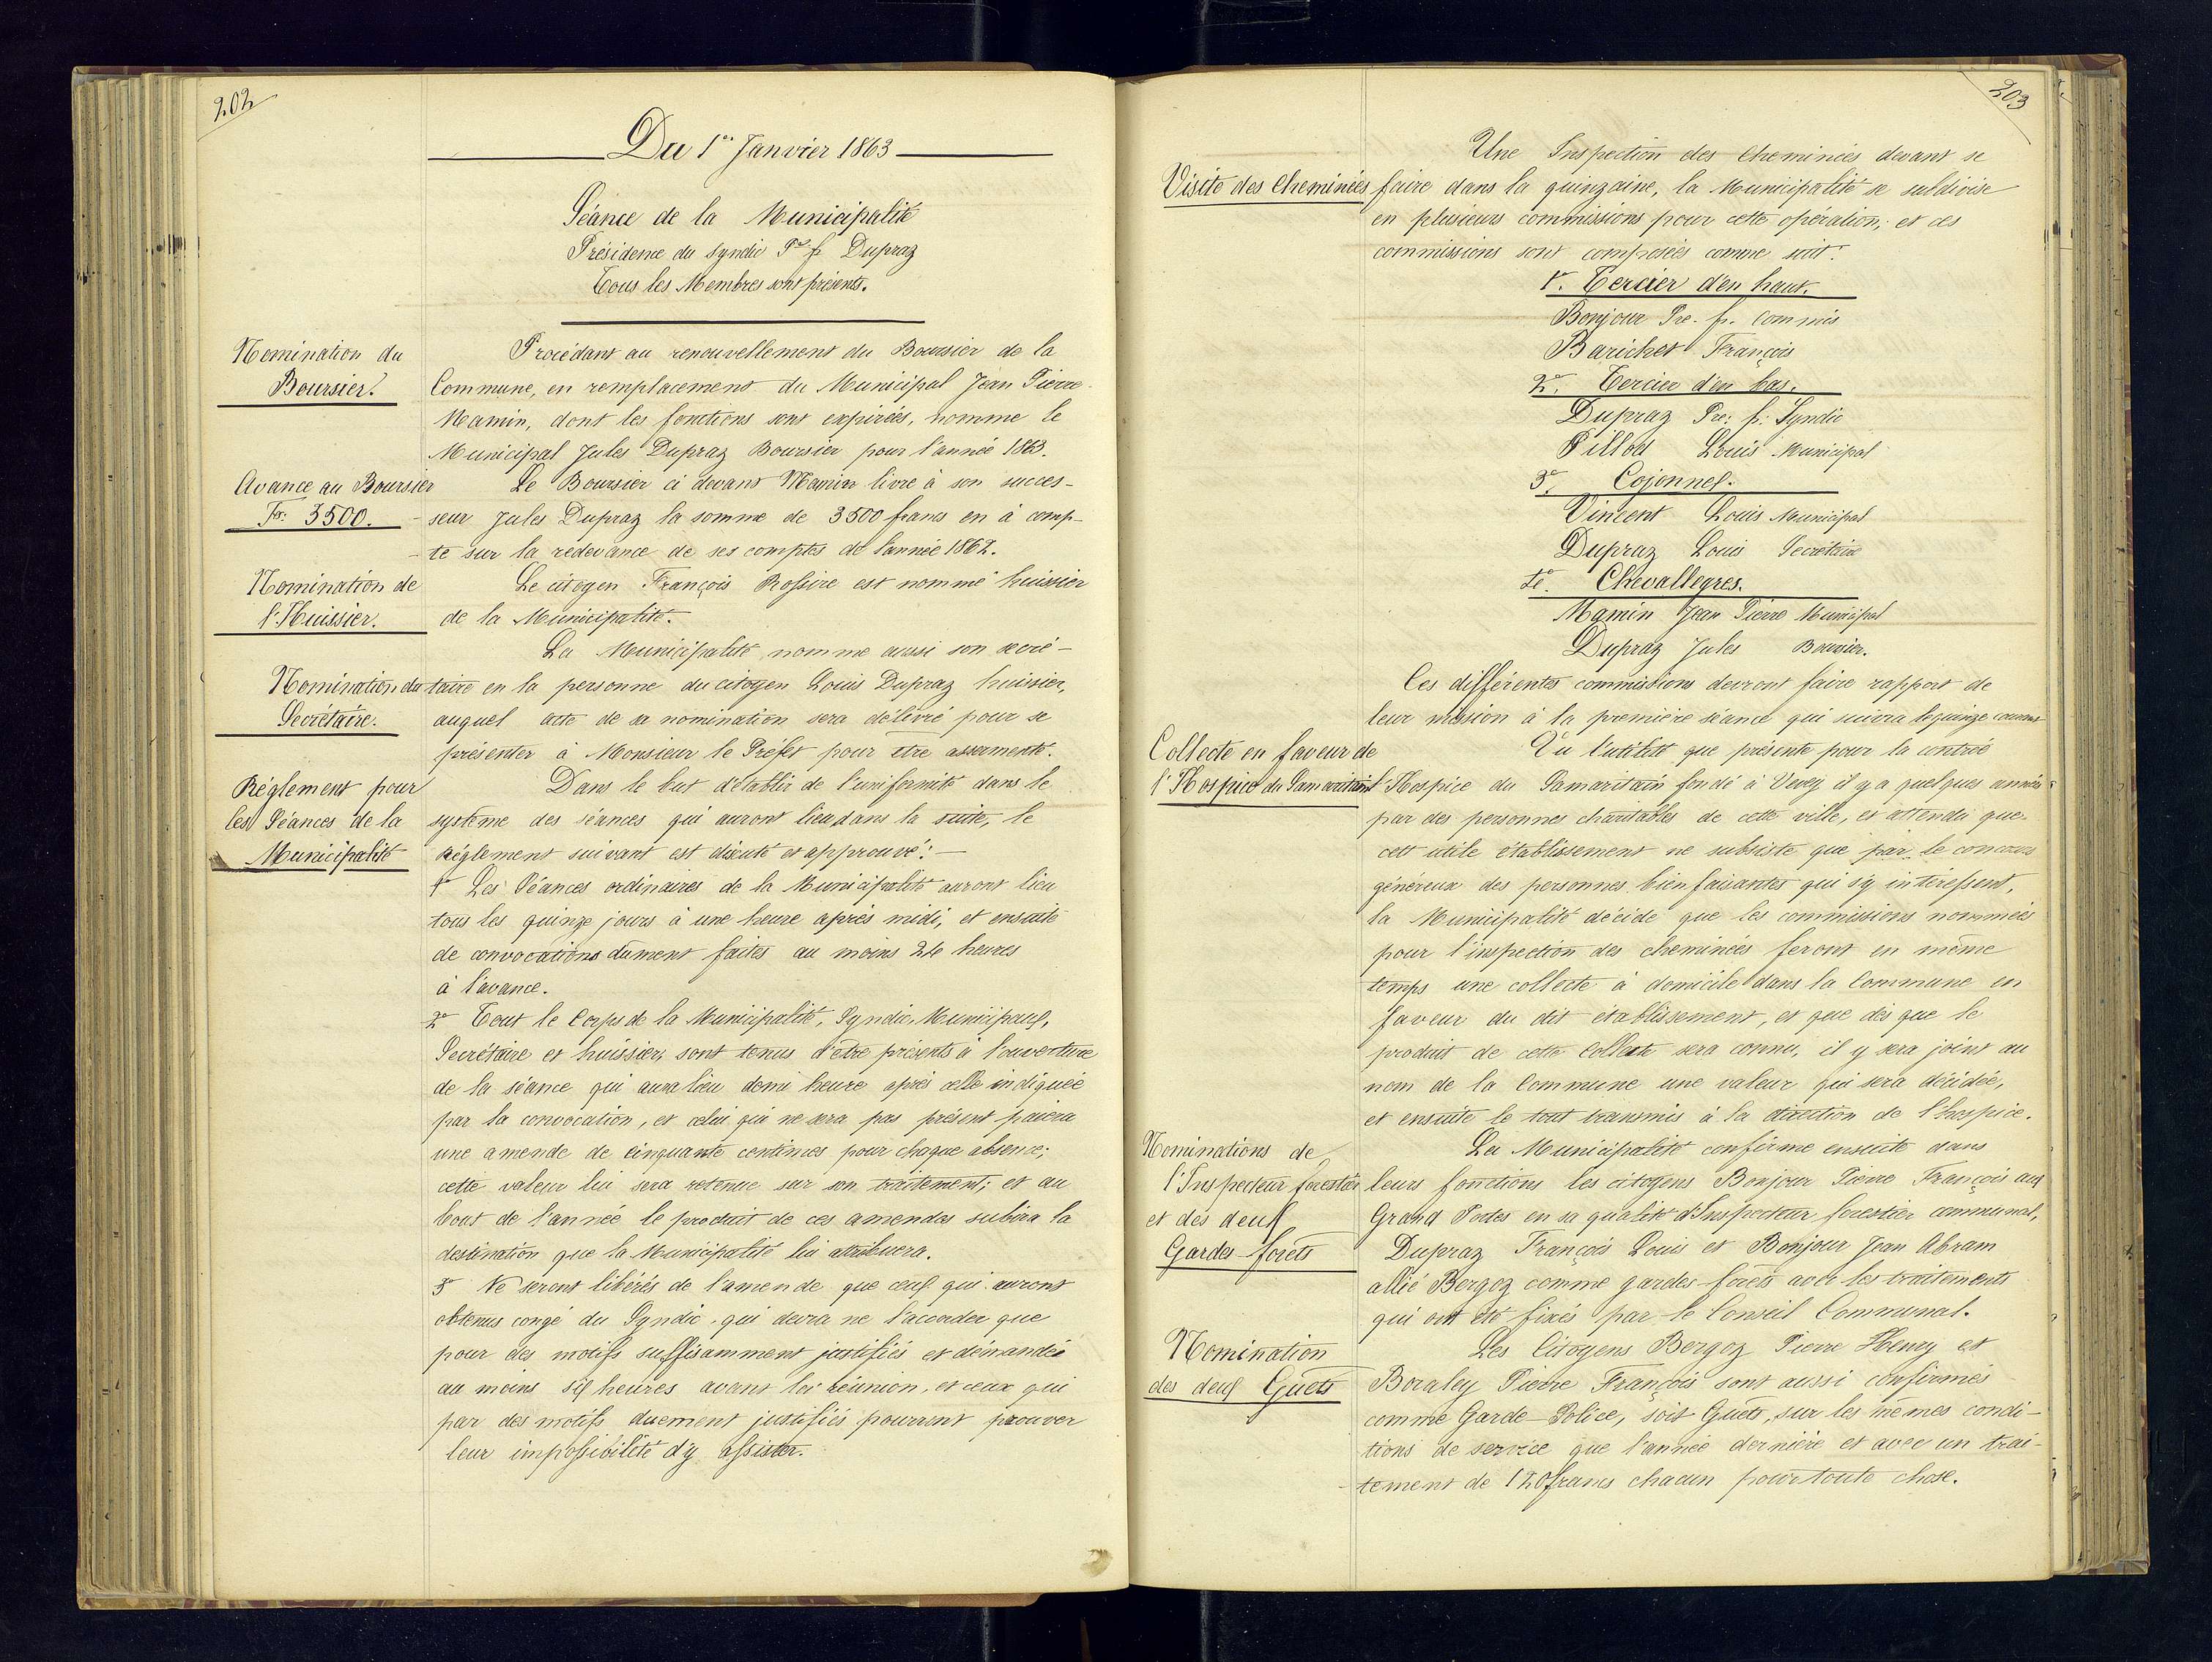 202
Du 1er Janvier 1863
Séance de la Municipalité
Présidence du Syndic Pre fs Dupraz
Tous les Membres sont présents.
Nomination du
Boursier.
Procédant au renouvellement du Boursier de la
Commune, en remplacement du Municipal Jean Pierre
Mamin, dont les fonctions sont expirées, nomme le
Municipal Jules Dupraz Boursier pour l'année 1863.
Avance au Boursier
Frs: 3500.
Le Boursier ci devant Mamin livre à son succes-
seur Jules Dupraz la somme de 3500 francs en à comp-
-te sur la redevance de ses comptes de l'année 1862.
Nomination de
l'Huissier.
Le citoyen François Rossire est nommé huissier
de la Municipalité.
Nomination du
Secrétaire.
La Municipalité nomme aussi son secré-
taire en la personne du citoyen Louis Dupraz huissier,
auquel acte de sa nomination sera délivré pour se
présenter à Monsieur le Préfet pour être assermenté.
Réglement pour
les Séances de la
Municipalité
Dans le but d'établir de l'uniformité dans le
système des séances qui auront lieu dans la suite, le
Réglement suivant est discuté et approuvé: -
1° Les Séances ordinaires de la Municipalité auront lieu
tous les quinze jours à une heure après midi, et ensuite
de convocations dûment faites au moins 24 heures
à l'avance.
2° Tout le Corps de la Municipalité, Syndic, Municipaux,
Secrétaire et huissier, sont tenus d'être présents à l'ouverture
de la séance qui aura lieu demi heure après celle indiquée
par la convocation, et celui qui ne sera pas présent paiera
une amende de cinquante centimes pour chaque absence;
cette valeur lui sera retenue sur son traitement; et au
bout de l'année le produit de ces amendes subira la
destination que la Municipalité lui attribuera.
3° Ne seront libérés de l'amende que ceux qui auront
obtenus congé du Syndic qui devra ne l'accorder que
pour des motifs suffisamment justifiés et démandés
au moins six heures avant la réunion, et ceux qui
par des motifs duement justifiés pourront prouver
leur impossibilité d'y assister.
203
Visite des Cheminées
Une Inspection des Cheminées devant se
faire dans la quinzaine, la Municipalité se subdivise
en plusieurs commissions pour cette opération; et ces
commissions sont composées comme suit:
1°. Tercier d'en haut.
Bonjour Pre. fs. Commis
Barichet François
2°. Tercier d'en bas.
Dupraz Pre: fs: Syndic
Pilliod Louis Municipal
3°. Cojonnex.
Vincent Louis Municipal
Dupraz Louis Secrétaire
4°. Chevalleyres.
Mamin Jean Pierre Municipal
Dupraz Jules Boursier.
Ces différentes commissions devront faire rapport de
leur mission à la première séance qui suivra le quinze courant
Collecte en faveur de
l'Hospice du Samaritain
Vu l'utilité que présente pour la contrée
l'Hospice du Samaritain fondé à Vevey il y a quelques années
par des personnes charitables de cette ville, et attendu que
cet utile établissement ne subsiste que par le concours
généreux des personnes bienfaisantes qui s'y intéressent,
la Municipalité décide que les commissions nommées
pour l'inspection des cheminées feront en même
temps une collecte à domicile dans la Commune en
faveur du dit établissement, et que dès que le
produit de cette Collecte sera connu, il y sera joint au
nom de la Commune une valeur qui sera décidée,
et ensuite le tout transmis à la direction de l'hospice.
Nominations de
l'Inspecteur forestier
et des deux
Gardes-forêts
La Municipalité confirme ensuite dans
leurs fonctions les citoyens Bonjour Pierre François aux
Grand Portes en sa qualité d'Inspecteur forestier communal,
Dupraz François Louis et Bonjour Jean Abram
allié Bergoz comme gardes-forêts avec les traitements
qui ont été fixés par le Conseil Communal.
Nomination
des deux Guets
Les Citoyens Bergoz Pierre Henry et
Boraley Pierre François sont aussi confirmés
comme Garde-Police, soit Guets, sur les mêmes condi-
tions de service que l'année dernière et avec un trai-
-tement de 120 francs chacun pour toute chose.